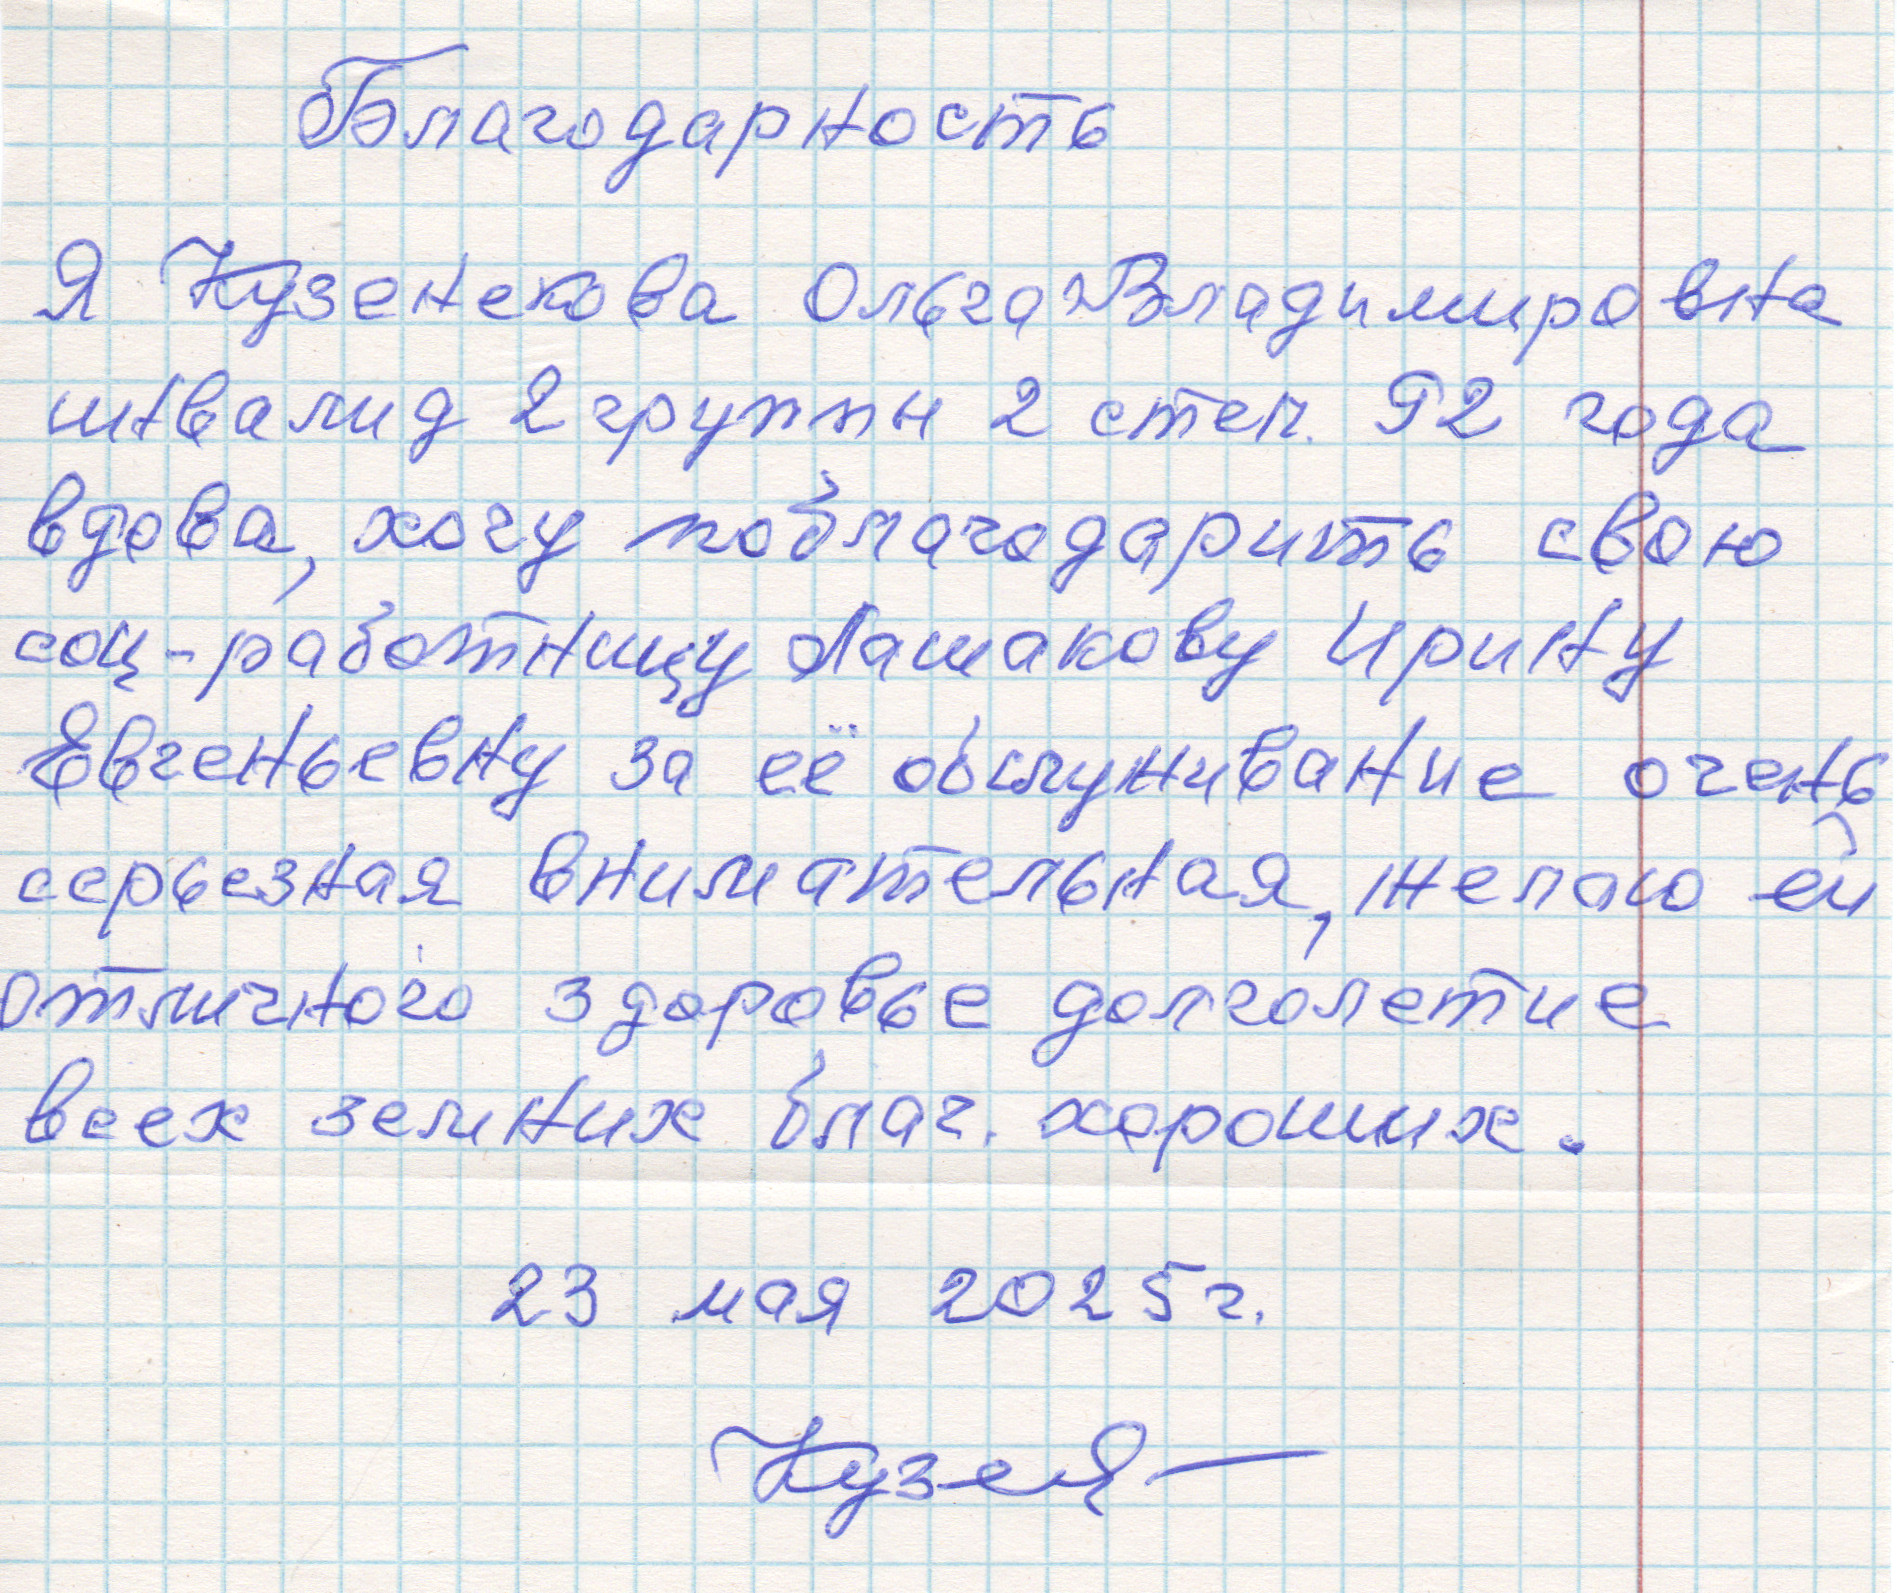 Благодарность
Я Кузенекова Ольга Владимировна
инвалид 2 группы 2 степ. 92 года
вдова, хочу поблагодарить свою
соц-работницу Лашакову Ирину
Евгеньевну за её обслуживание очень
серьезная внимательная, желаю ей
отличного здоровье долголетие
всех земних благ. хороших.
23 мая 2025 г.